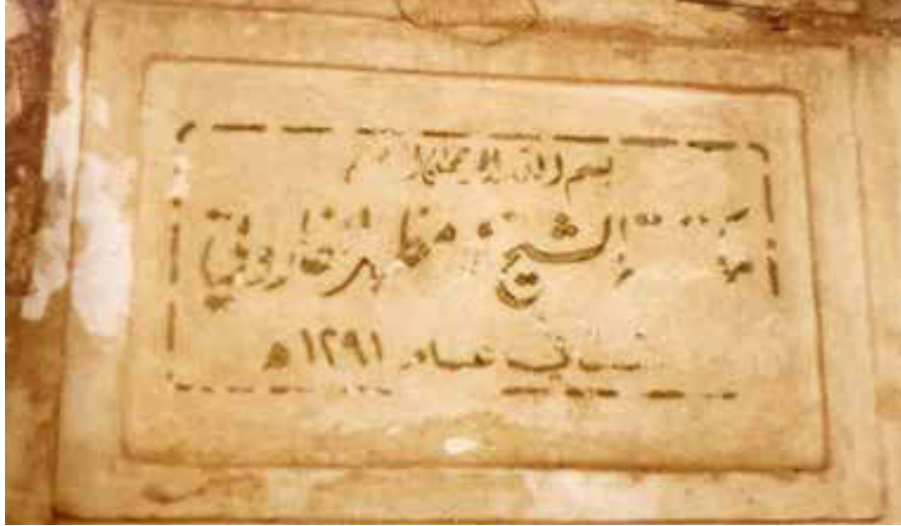 بسم الله الرحمن الرحيم
مكتبة الشيخ مظهر الفاروقي
في عام ١٢٩١ هـ